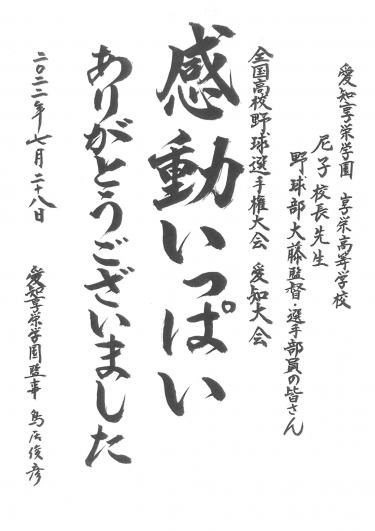 愛知享栄学園 享栄高等学校
尼子校長先生
野球部大藤監督・選手部員の皆さん
全国高校野球選手権大会 愛知大会
感動いっぱい
ありがとうございました
二〇二二年七月二十八日
愛知享栄学園監事 鳥居俊彦